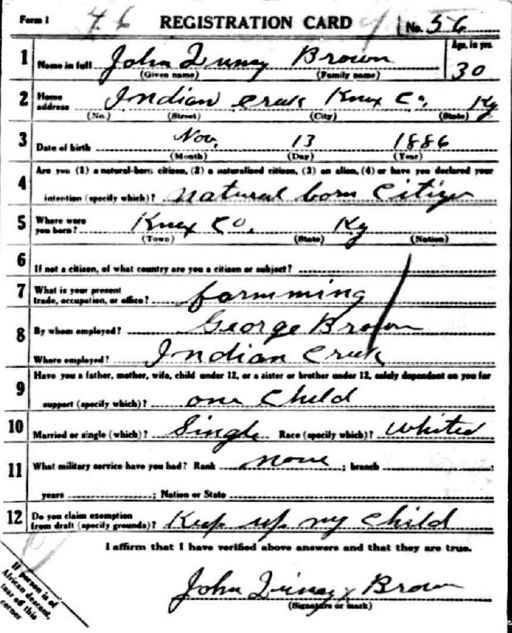 Form 1 REGISTRATION CARD No. 56
1 Name in full John Quincy Brown Age, in yrs. 30
(Given name) (Family name)
2 Home address Indian Creek Knox Co. Ky
(No.) (Street) (City) (State)
3 Date of birth Nov. 13 1886
(Month) (Day) (Year)
4 Are you (1) a natural-born citizen, (2) a naturalized citizen, (3) an alien, (4) or have you declared your
intention (specify which)? natural born Citizen
5 Where were you born? Knox Co. Ky
(Town) (State) (Nation)
6 If not a citizen, of what country are you a citizen or subject?
7 What is your present trade, occupation, or office? farmming
8 By whom employed? George Brown
Where employed? Indian Creek
9 Have you a father, mother, wife, child under 12, or a sister or brother under 12, solely dependent on you for
support (specify which)? one Child
10 Married or single (which)? Single Race (specify which)? White
11 What military service have you had? Rank none ; branch ;
years ; Nation or State
12 Do you claim exemption from draft (specify grounds)? Keep up my Child
I affirm that I have verified above answers and that they are true.
John Quincy Brown
(Signature or mark)
If person is of
African descent,
tear off this
corner